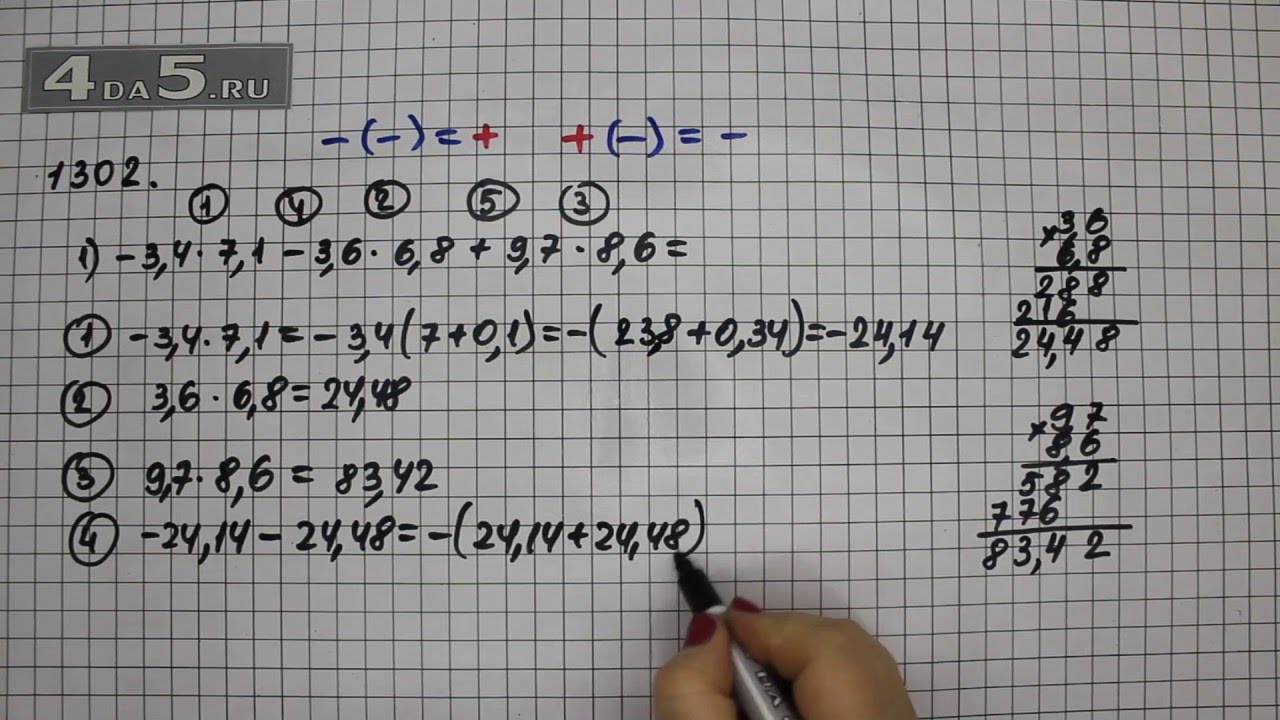 4DA5.RU
-(-)=+ +(-)=-
1302.
① ④ ② ⑤ ③
1) -3,4·7,1-3,6·6,8+9,7·8,6=
① -3,4·7,1=-3,4(7+0,1)=-(23,8+0,34)=-24,14
② 3,6·6,8=24,48
③ 9,7·8,6=83,42
④ -24,14-24,48=-(24,14+24,48)
×3,6
6,8
288
216
24,48
×9,7
8,6
582
776
83,42